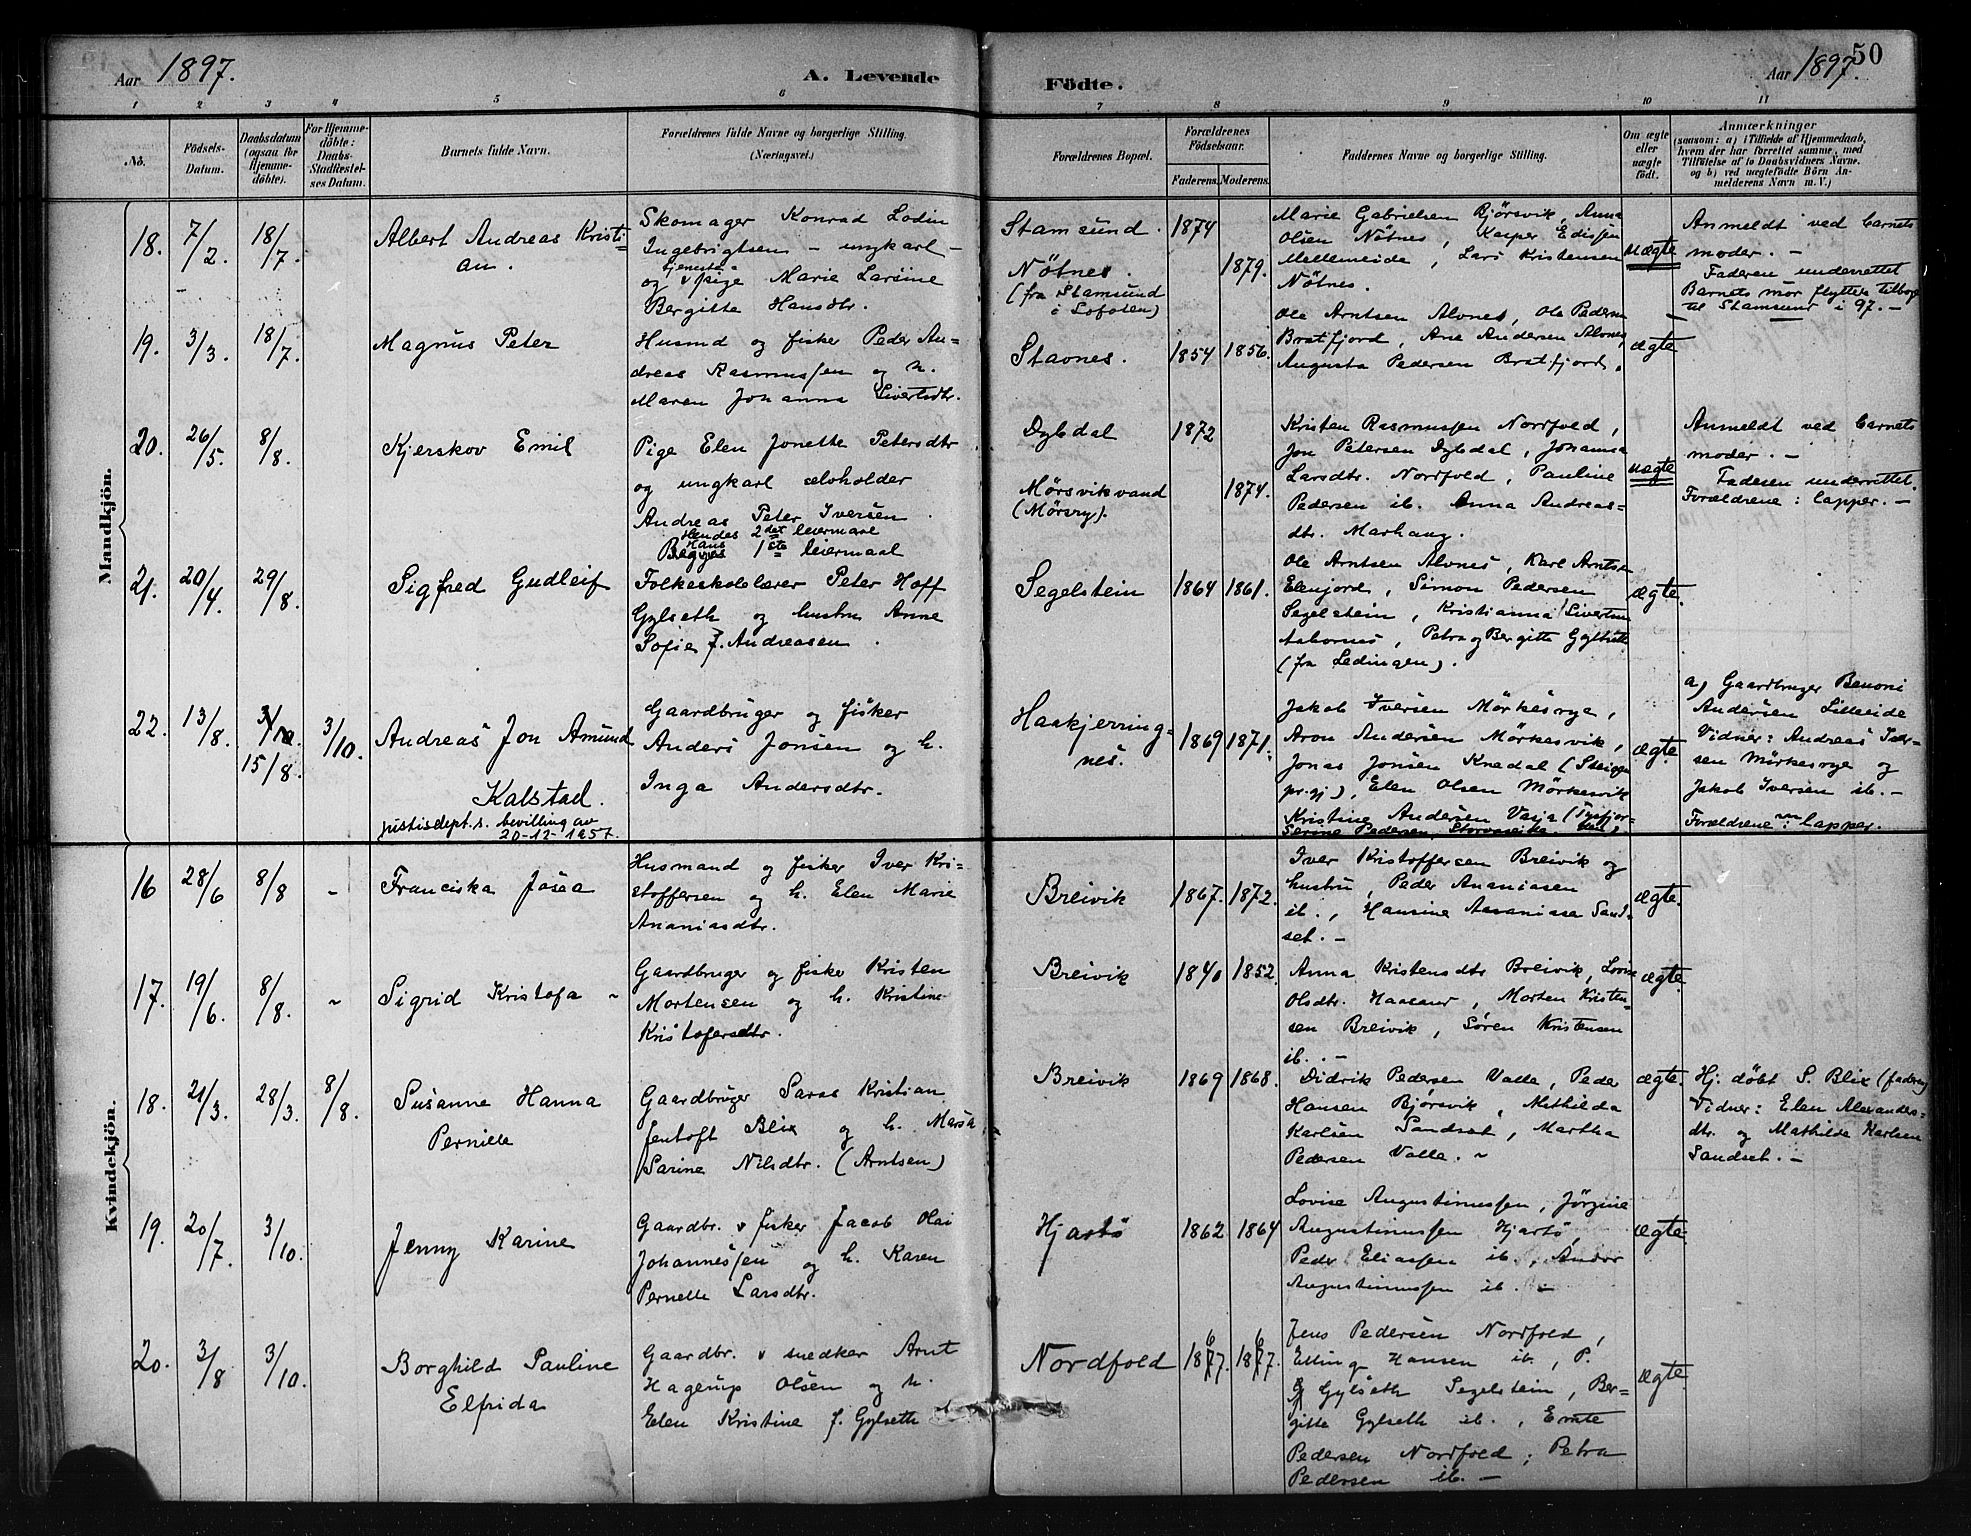 Aar 1897.
A. Levende
Födte.
Aar 1897.
50
1 2 3 4 5 6 7 8 9 10 11
No.
Födsels-
Datum.
Daabsdatum
(ogsaa for
Hjemme-
döbte).
For Hjemme-
döbte:
Daabs-
Stadfæstel-
ses Datum.
Barnets fulde Navn.
Forældrenes fulde Navne og borgerlige Stilling.
(Næringsvei.)
Forældrenes Bopæl.
Forældrenes
Födselsaar.
Faderens. Moderens.
Faddernes Navne og borgerlige Stilling.
Om ægte
eller
uægte
födt.
Anmærkninger
(saasom: a) i Tilfælde af Hjemmedaab,
hvem der har forrettet samme, med
Tilföielse af to Daabsvidners Navne.
og b) ved uægtefödte Börn An-
melderens Navn m. V.)
Mandkjön.
18. 7/2. 18/7.
Albert Andreas Kristi-
an.
Skomager Konrad Lodin
Ingebrigtsen – ungkarl –
og tjeneste-
pige Marie Lariine
Bergitte Hansdtr.
Stamsund.
Nötnes.
(fra Stamsund
i Lofoten)
1874
1879.
Marie Gabrielsen Bjørsvik, Anna
Olsen Nötnes, Kasper Edissen
Mellemeide, Lars Kristensen
Nötnes.
uægte
Anmeldt ved barnets
moder. –
Faderen underrettet
Barnets mor flyttede
til Stamsund i 97. –
19. 3/3. 18/7.
Magnus Peter
Husmd og fisker Peder An-
dreas Rasmussen og h.
Maren Johanna Sivertsdtr.
Stavnes.
1854 1856.
Ole Arntsen Alvnes, Ole Pedersen
Bratfjord, Ane Andersen Alvnes,
Augusta Pedersen Bratfjord.
ægte
20. 26/5. 8/8.
Kjerskov Emil
Pige Elen Jonette Petersdtr
og ungkarl selvholder
Andreas Peter Iversen.
Hendes 2det leiermaal
Hans 1ste leiermaal
Dybdal
Mørsvikvand
(Mørsry).
1872
1874.
Kristen Rasmussen Nordfold,
Jon Petersen Dybdal, Johanna
Larsdtr. Nordfold, Pauline
Pedersen ib. Anna Andreas-
dtr. Marhaug.
uægte
Anmeldt ved barnets
moder. –
Faderen underrettet.
Forældrene: lapper. –
21. 20/4. 29/8.
Sigfred Gudleif
Folkeskolelærer Peter Hoff
Gylseth og hustru Anne
Sofie f. Andreasen.
Segelstein
1864 1861.
Ole Arntsen Alvnes, Karl Arntsen
Elenjord, Simon Pedersen
Segelstein, Kristianna Sivertsen
Petra og Bergitte Gylseth
(fra Lødingen).
ægte.
22. 13/8. 3/10. 15/8. 3/10.
Andreas Jon Amund
Kalstad.
justisdept.s. bevilling av
20-12-1957.
Gaardbruger og fisker
Anders Jonsen og h.
Inga Andersdtr.
Haakjerring-
nes.
1869 1871.
Jakob Iversen Mörkesrye,
Aron Andersen Mörkesvik,
Jonas Jonsen Knedal (Steigen
pr.gj), Elen Olsen Mörkesvik
Kristine Andersen Vasja (Tysfjor-
ægte
a) Gaardbruger Benoni
Andersen Lilleeide
Vidner: Andreas Iver-
sen Mörkesrye og
Jakob Iversen ib. –
Forældrene: lapper.
Kvindekjön.
16 28/6 8/8 –
Franciska Josea
Husmand og fisker Iver Kri-
stoffersen og h. Elen Marie
Ananiasdtr.
Breivik
1867. 1872.
Iver Kristoffersen Breivik og
hustru, Peder Ananiasen
ib., Hansine Sand-
set. –
ægte.
17. 19/6. 8/8. ~
Sigrid Kristofa ~
Gaardbruger og fisker Kristen
Mortensen og h. Kristine
Kristofersdtr.
Breivik
1840 1852.
Anna Kristensdtr Breivik, Lovise
Olsdtr. Haasand, Morten Kristen-
sen Breivik, Søren Kristensen
ib. –
ægte.
18. 21/3. 28/3. 8/8.
Susanne Hanna
Pernille
Gaardbruger Saras Kristian
Jentoft Blix og h. Marsa
Sarine Nilsdtr. (Arntsen)
Breivik
1869 1868.
Didrik Pedersen Valle, Peder
Hansen Bjørsvik, Mathilda
Karlsen Sandset, Martha
Pedersen Valle. ~
ægte.
Hj. døbt S. Blix (faderen)
Vidner: Elen Alexanders-
dtr. og Mathilde Karlsen
Sandset. –
19. 20/7. 3/10.
Jenny Karine
Gaardbr. & fisker Jacob Olai
Johannessen og h. Karen
Pernelle Larsdtr.
Hjartö
1862 1864
Lovise Augustinussen, Jørgine
Augustinussen Hjartö,
Peder Eliassen ib., Andor
Augustinussen ib. –
ægte.
20. 3/8 3/10.
Borghild Pauline
Elfrida
Gaardbr. & snedker Arnt
Hagerup Olsen og h.
Elen Kristine f. Gylseth
Nordfold
1867. 1867.
Jens Pedersen Nordfold,
Elling Hansen ib., P.
Gylseth Segelstein, Ber-
gitte Gylseth ib.,
Pedersen Nordfold, Petra
Pedersen ib. –
ægte.